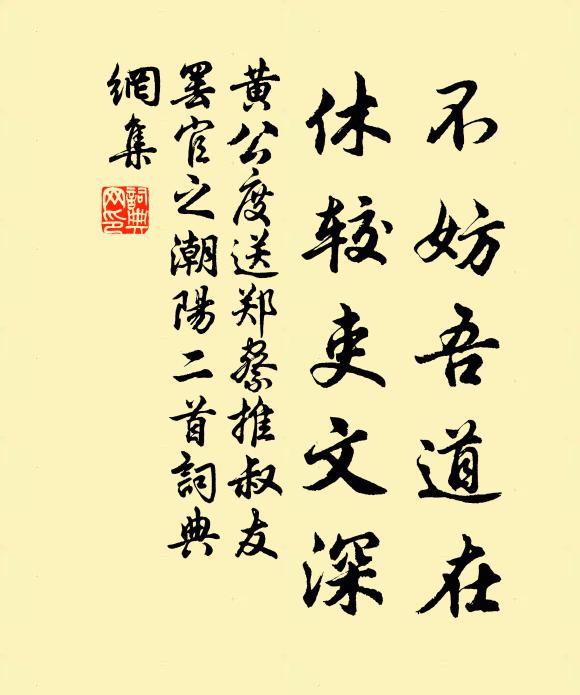 不妨吾道在
休较吏文深
黄公度送郑察推叔友
罢官之潮陽二首詞典
網集
詞典
网印